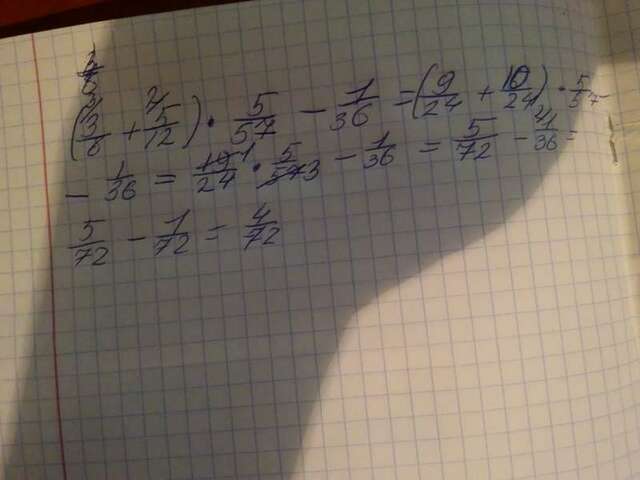 (3/8 + 5/12) · 5/57 - 1/36 = (9/24 + 10/24) · 5/57
- 1/36 = 19/24 · 5/57 - 1/36 = 5/72 - 1/36 =
5/72 - 1/72 = 4/72